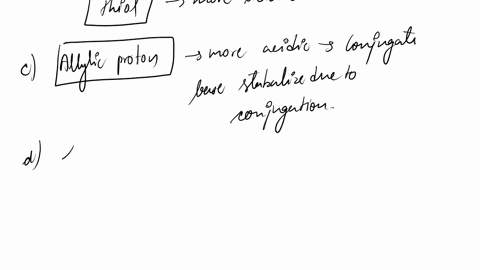 thiol → more
c) Allylic proton → more acidic → conjugate
base stabalize due to
conjugation.
d)